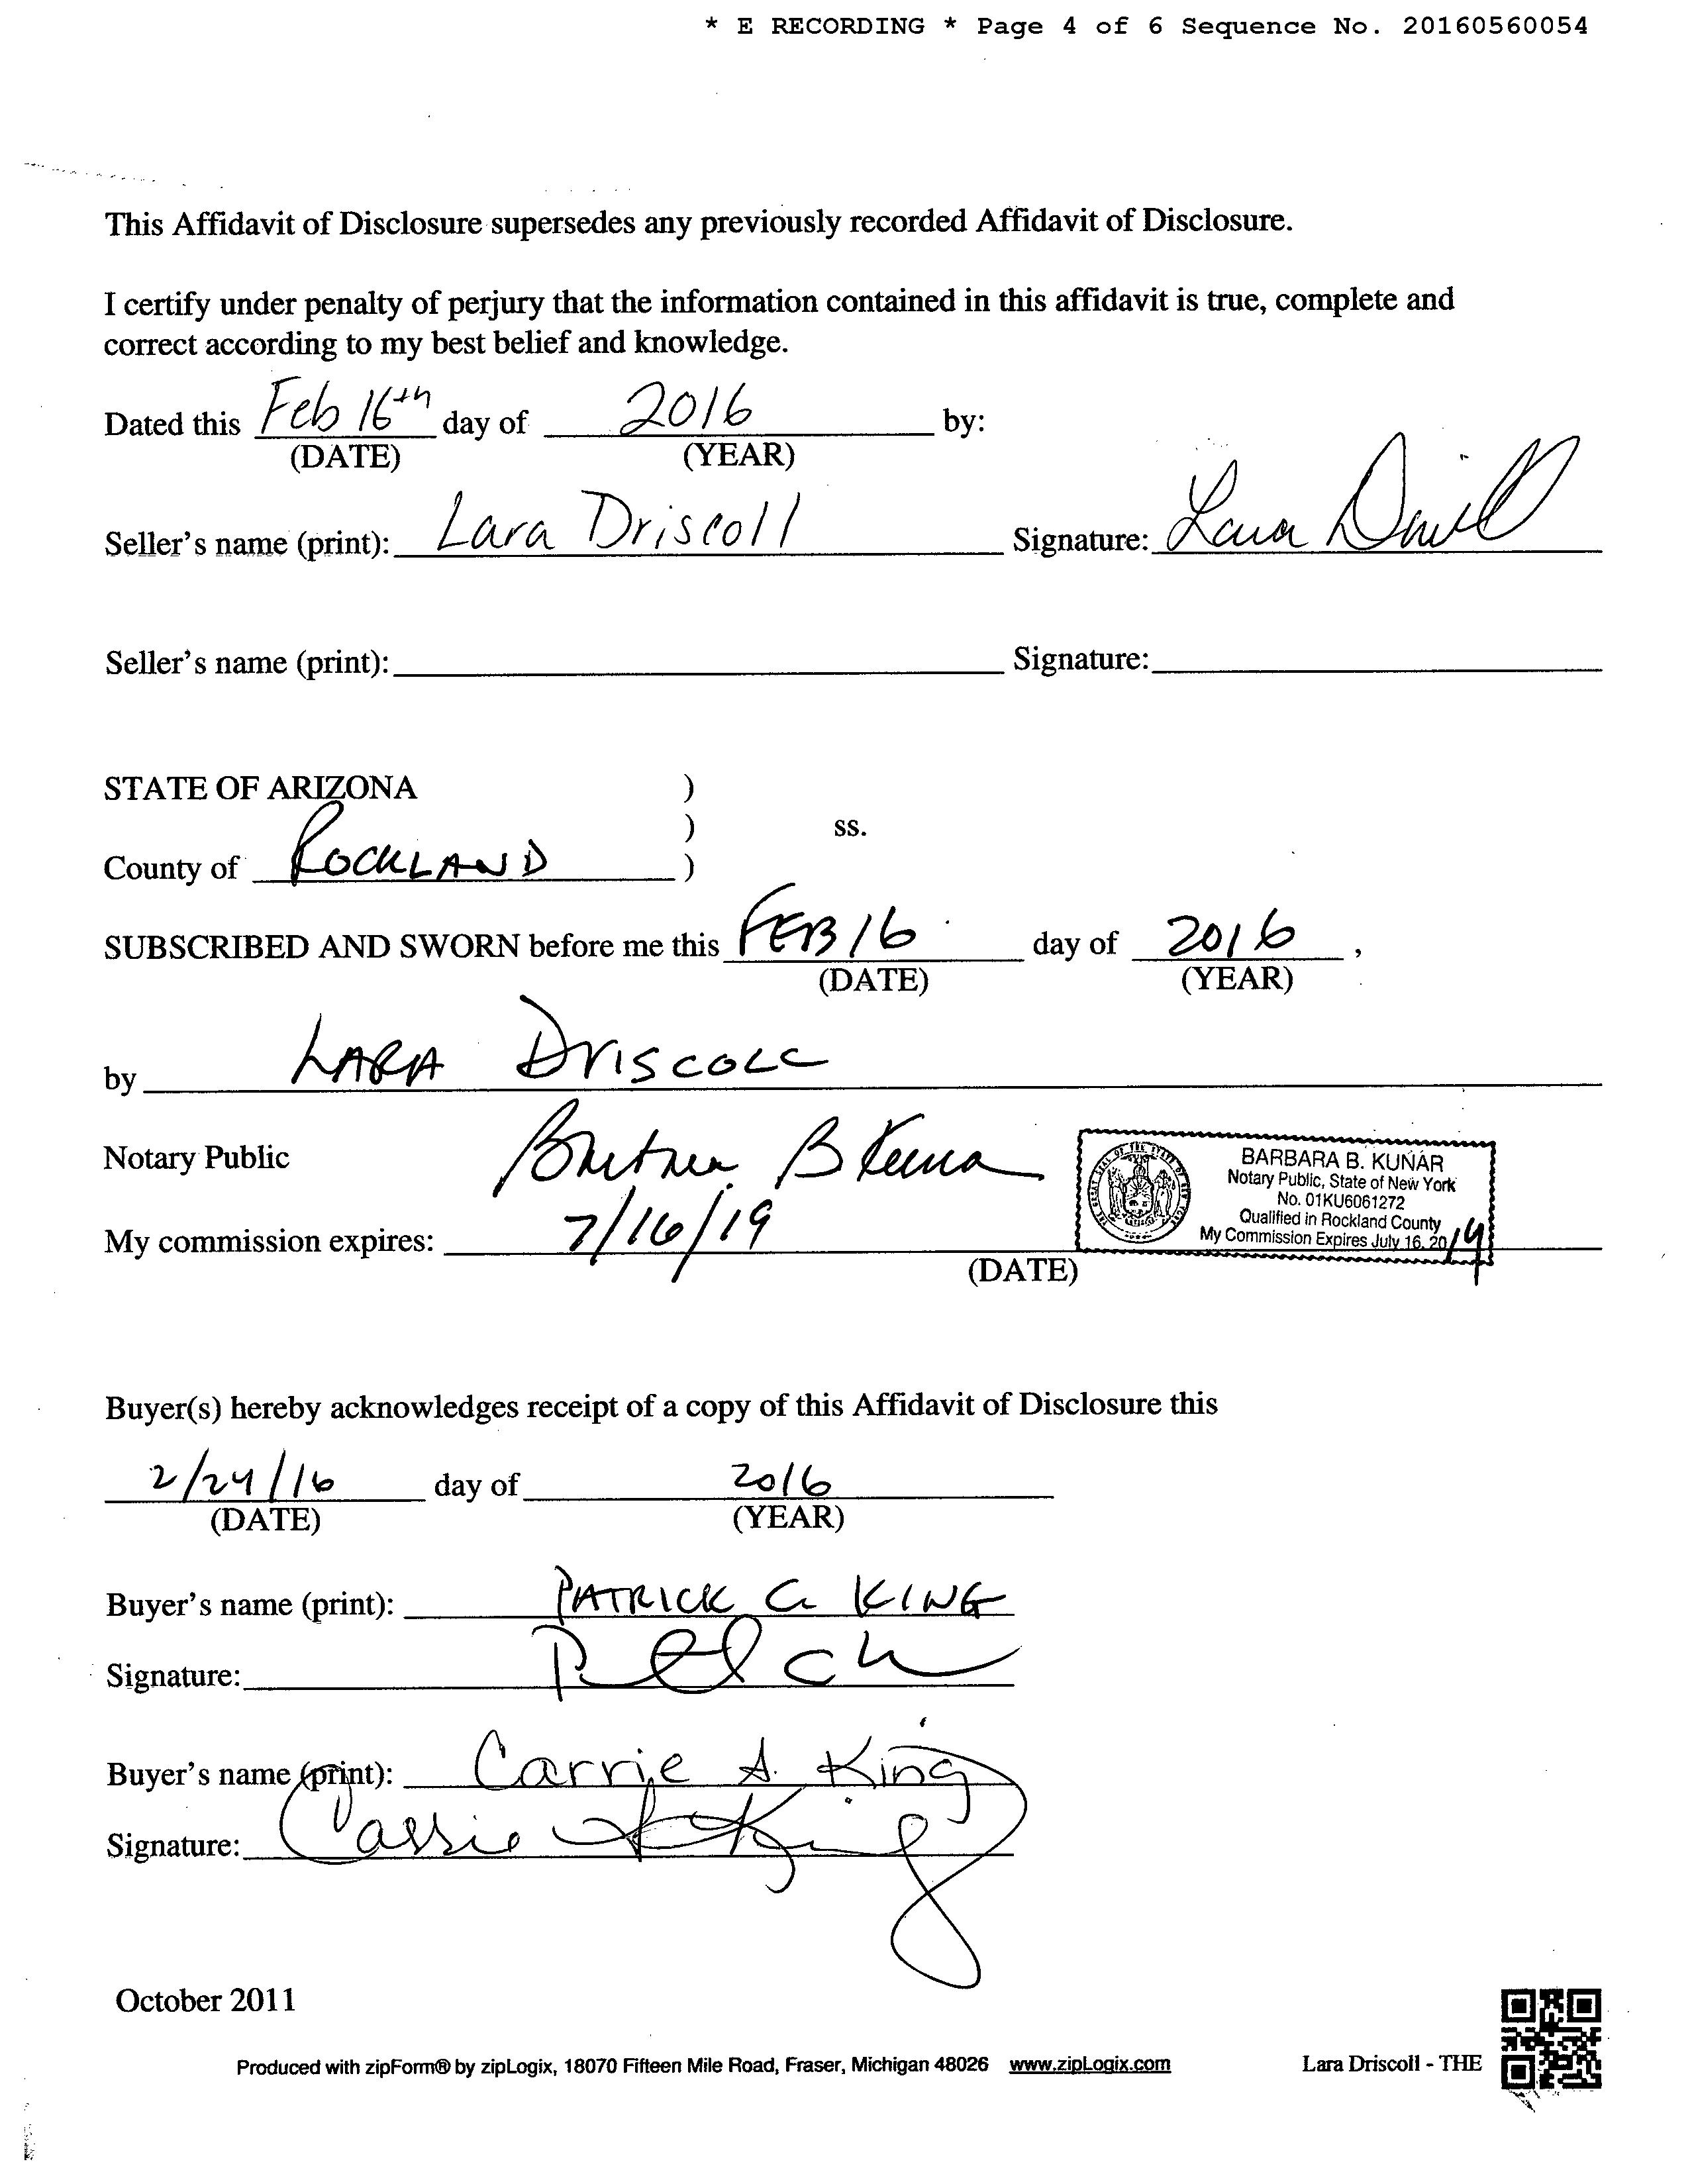 * E RECORDING * Page 4 of 6 Sequence No. 20160560054
This Affidavit of Disclosure supersedes any previously recorded Affidavit of Disclosure.
I certify under penalty of perjury that the information contained in this affidavit is true, complete and
correct according to my best belief and knowledge.
Dated this Feb 16th day of 2016 by:
(DATE) (YEAR)
Seller's name (print): Lara Driscoll Signature: Lara
Seller's name (print): Signature:
STATE OF ARIZONA )
) ss.
County of ROCKLAND )
SUBSCRIBED AND SWORN before me this FEB 16 day of 2016,
(DATE) (YEAR)
by LARA DRISCOLL
Notary Public
BARBARA B. KUNAR
Notary Public, State of New York
No. 01KU6061272
Qualified in Rockland County
My Commission Expires July 16, 2019
My commission expires: 7/16/19
(DATE)
Buyer(s) hereby acknowledges receipt of a copy of this Affidavit of Disclosure this
2/24/16 day of 2016
(DATE) (YEAR)
Buyer's name (print): PATRICK G KING
Signature:
Buyer's name (print): Carrie A. King
Signature: Carrie A King
October 2011
Produced with zipForm® by zipLogix, 18070 Fifteen Mile Road, Fraser, Michigan 48026 www.zipLogix.com
Lara Driscoll - THE